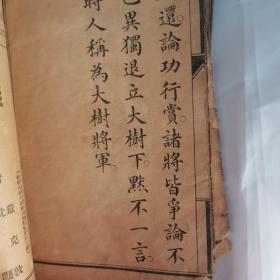 還論功行賞。諸將皆爭論不
已。異獨退立大樹下。默不一言。
時人稱為大樹將軍。
戴
克
敦